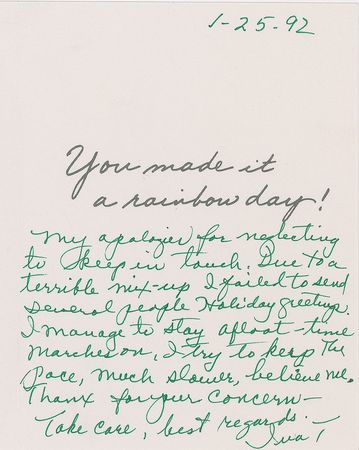 1-25-92
You made it
a rainbow day!
My apologies for neglecting
to keep in touch. Due to a
terrible mix-up I failed to send
several people Holiday greetings.
I manage to stay afloat - time
marches on, I try to keep the
pace, much slower, believe me.
Thanx for your concern -
Take care, best regards -
Iva T